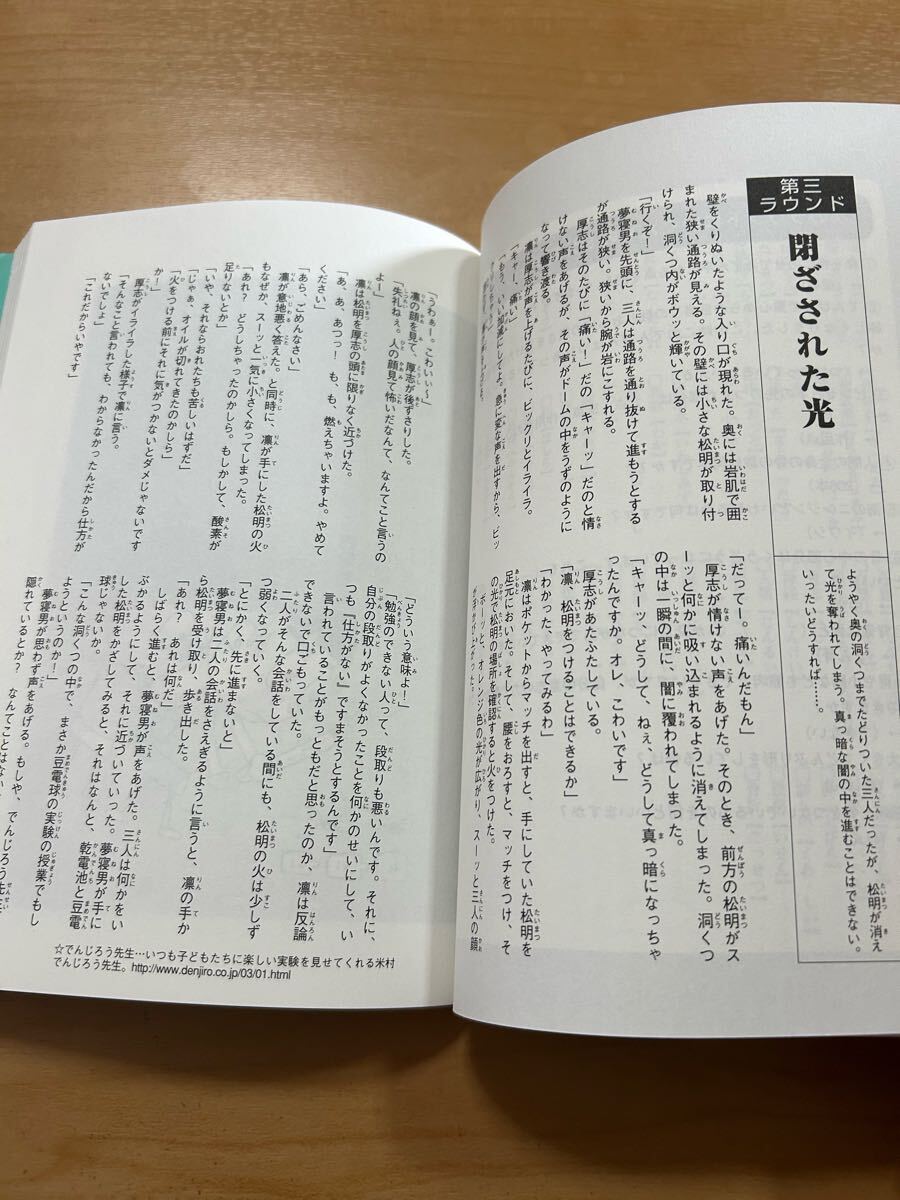 第三
ラウンド
閉ざされた光
ようやく奥の洞くつまでたどりついた三人だったが、松明が消え
て光を奪われてしまう。真っ暗な闇の中を進むことはできない。
いったいどうすれば……。
壁をくりぬいたような入り口が現れた。奥には岩肌で囲
まれた狭い通路が見える。その壁には小さな松明が取り付
けられ、洞くつ内がボウッと輝いている。
「行くぞ！」
夢寝男を先頭に、三人は通路を通り抜けて進もうとする
が通路が狭い。狭いから腕が岩にこすれる。
厚志はそのたびに「痛い！」だの「キャーッ」だのと情
けない声をあげるが、その声がドームの中をうずのように
なって響き渡る。
凛は厚志が声を上げるたびに、ビックリとイライラ。
「キャー、痛い」
「もう、いい加減にしてよ。急に変な声を出すから、ビッ
「だってー。痛いんだもん」
厚志が情けない声をあげた。そのとき、前方の松明がス
ーッと何かに吸い込まれるように消えてしまった。洞くつ
の中は一瞬の間に、闇に覆われてしまった。
「キャーッ、どうして、ねぇ、どうして真っ暗になっちゃ
ったんですか。オレ、こわいです」
厚志があたふたしている。
「凛、松明をつけることはできるか」
「わかった、やってみるわ」
凛はポケットからマッチを出すと、手にしていた松明を
足元においた。そして、腰をおろすと、マッチをつけ、そ
の光で松明の場所を確認すると火をつけた。
ボーッと、オレンジ色の光が広がり、スーッと三人の顔
「うわぁー。こわいぃ～」
凛の顔を見て、厚志が後ずさりした。
「失礼ねぇ。人の顔見て怖いだなんて、なんてこと言うの
よー」
凛は松明を厚志の頭に限りなく近づけた。
「あ、あ、あつっ！　も、も、燃えちゃいますよ。やめて
ください」
「あら、ごめんなさい」
凛が意地悪く答えた。と同時に、凛が手にした松明の火
もなぜか、スーッと一気に小さくなってしまった。
「あれ？　どうしちゃったのかしら。もしかして、酸素が
足りないとか」
「いや、それならおれたちも苦しいはずだ」
「じゃぁ、オイルが切れてきたのかしら」
「火をつける前にそれに気がつかないとダメじゃないです
か！」
厚志がイライラした様子で凛に言う。
「そんなこと言われても、わからなかったんだから仕方が
ないでしょ」
「これだからいやです」
「どういう意味よ！」
「勉強のできない人って、段取りも悪いんです。それに、
自分の段取りがよくなかったことを何かのせいにして、い
つも「仕方がない」ですまそうとするんです」
言われていることがもっともだと思ったのか、凛は反論
できないで口ごもっていた。
二人がそんな会話をしている間にも、松明の火は少しず
つ弱くなっていく。
「とにかく、先に進まないと」
夢寝男は二人の会話をさえぎるように言うと、凛の手か
ら松明を受け取り、歩き出した。
「あれ？　あれは何だ」
しばらく進むと、夢寝男が声をあげた。三人は何かをい
ぶかるようにして、それに近づいていった。夢寝男が手に
した松明をかざしてみると、それはなんと、乾電池と豆電
球じゃないか。
「こんな洞くつの中で、まさか豆電球の実験の授業でもし
ようというのか！」
夢寝男が思わず声をあげる。もしや、でんじろう先生
隠れているとか？
☆でんじろう先生…いつも子どもたちに楽しい実験を見せてくれる米村
でんじろう先生。http://www.denjiro.co.jp/03/01.html